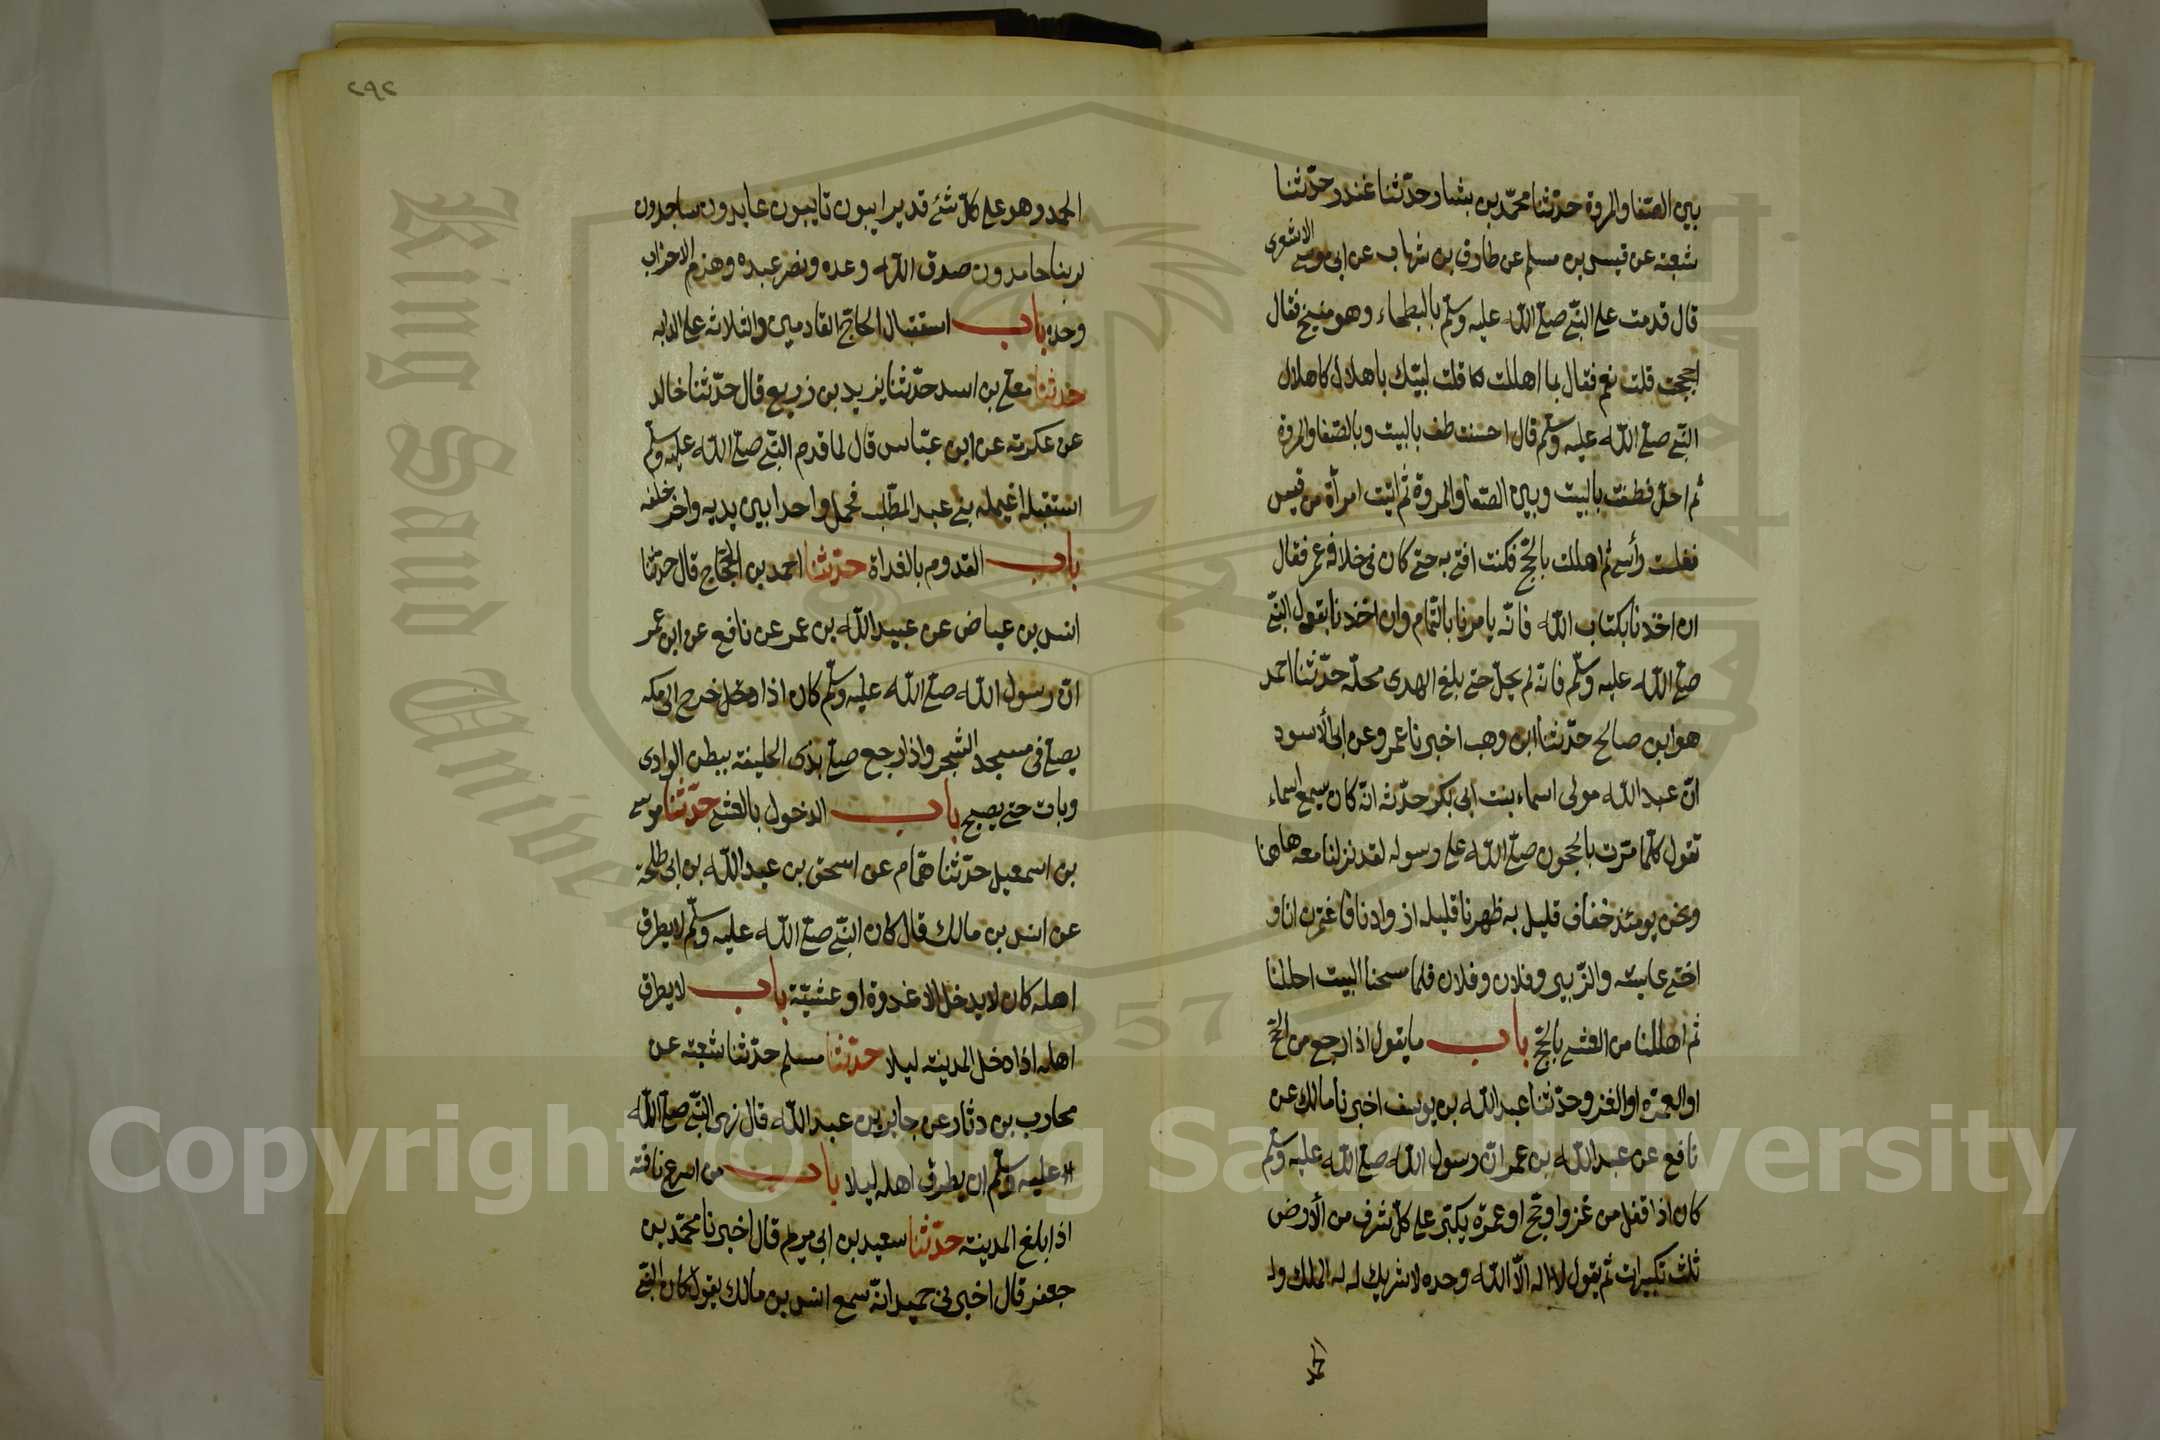 بين الصفا والمروة حدثنا محمد بن بشار حدثنا غندر حدثنا
شعبة عن قيس بن مسلم عن طارق بن شهاب عن ابى موسى الاشعرى
قال قدمت على النبى صلى الله عليه وسلم بالبطحاء وهو منيخ فقال
احججت قلت نعم فقال بما اهللت قلت لبيك باهلال كاهلال
النبى صلى الله عليه وسلم قال احسنت طف بالبيت وبالصفا والمروة
ثم احل فطفت بالبيت وبين الصفا والمروة ثم اتيت امرأة من قيس
ففلت رأسى ثم اهللت بالحج فكنت افتى به حتى كان فى خلافة عمر فقال
ان اخذنا بكتاب الله فانه يامرنا بالتمام وان اخذنا بقول النبى
صلى الله عليه وسلم فانه لم يحل حتى بلغ الهدى محله حدثنا احمد
هو ابن صالح حدثنا ابن وهب اخبرنا عمرو عن ابى الاسود
ان عبد الله مولى اسماء بنت ابى بكر حدثه انه كان يسمع اسماء
تقول كلما مرت بالحجون صلى الله على رسوله لقد نزلنا معه هاهنا
ونحن يومئذ خفاف قليل به ظهرنا قليلة ازوادنا فاعتمرت انا و
اختى عايشه والزبير وفلان وفلان فلما مسحنا البيت احللنا
ثم اهللنا من العشى بالحج باب ما يقول اذا رجع من الحج
او العمرة او الغزو حدثنا عبد الله بن يوسف اخبرنا مالك عن
نافع عن عبد الله بن عمر ان رسول الله صلى الله عليه وسلم
كان اذا قفل من غزو او حج او عمرة يكبر على كل شرف من الأرض
ثلث تكبيرات ثم يقول لا اله الا الله وحده لا شريك له له الملك وله
الحمد
٢٩٢
الحمد وهو على كل شئ قدير ايبون تايبون عابدون ساجدون
لربنا حامدون صدق الله وعده ونصر عبده وهزم الاحزاب
وحده باب استقبال الحاج القادمين والثلاثة على الدابه
حدثنا معلى بن اسد حدثنا يزيد بن زريع قال حدثنا خالد
عن عكرمة عن ابن عباس قال لما قدم النبى صلى الله عليه وسلم
استقبله اغيلمه بنى عبد المطلب فحمل واحدا بين يديه واخر خلفه
باب القدوم بالغداة حدثنا احمد بن الحجاج قال حدثنا
انس بن عياض عن عبيد الله بن عمر عن نافع عن ابن عمر
ان رسول الله صلى الله عليه وسلم كان اذا دخل خرج الى مكه
يصلى فى مسجد الشجر واذا رجع صلى بذى الحليفة ببطن الوادى
وبات حتى يصبح باب الدخول بالعشى حدثنا موسى
بن اسمعيل حدثنا همام عن اسحق بن عبد الله بن ابى طلحة
عن انس بن مالك قال كان النبى صلى الله عليه وسلم لا يطرق
اهله كان لا يدخل الا غدوة او عشية باب لا يطرق
اهله اذا دخل المدينه ليلا حدثنا مسلم حدثنا شعبة عن
محارب بن دثار عن جابر بن عبد الله قال نهى النبى صلى الله
عليه وسلم ان يطرق اهله ليلا باب من اسرع ناقته
اذا بلغ المدينه حدثنا سعيد بن ابى مريم قال اخبرنا محمد بن
جعفر قال اخبرنى حميد انه سمع انس بن مالك يقول كان النبى
King Saud University
1957
Copyright © King Saud University